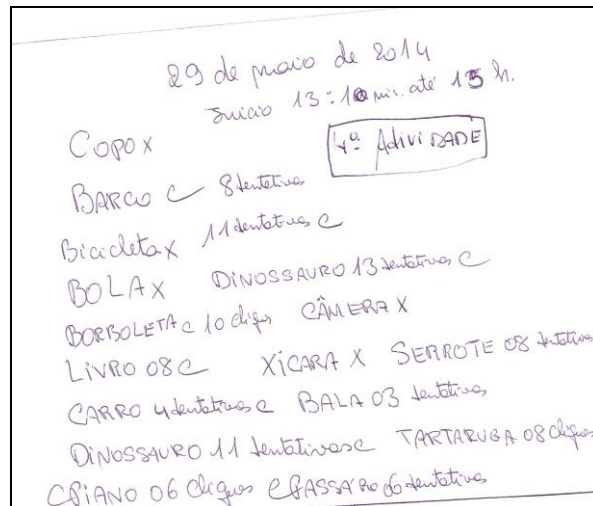 29 de maio de 2014
Inicio 13:10 min. até 15 h.
COPO X
4ª AdiviDADE
BARCO C 8 tentativas
Bicicleta X 11 tentativas C
BOLA X DiNOSSAURO 13 tentativas C
BORBOLETA C 10 cliques CÂMERA X
LiVRO 08 C XÍCARA X SERROTE 08 tentativas
CARRO 4 tentativas C BALA 03 tentativas
DiNOSSAURO 11 tentativas C TARTARUGA 08 cliques
C PiANO 06 cliques C PASSARO 06 tentativas